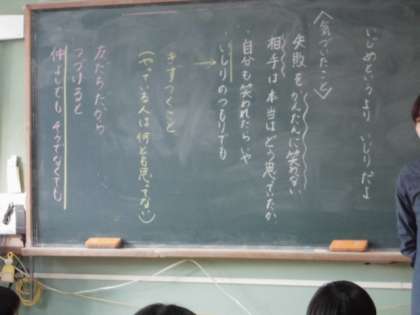 いじめというより いじりだよ
〈気づいたこと〉
失敗をかんたんに笑わない
相手は本当はどう思っていたか
・自分も笑われたらいや
・いじりのつもりでも
→
きずつくこと
(やっている人は何とも思ってない)
友だちだから
つづけると
仲よしでも テクでなくても